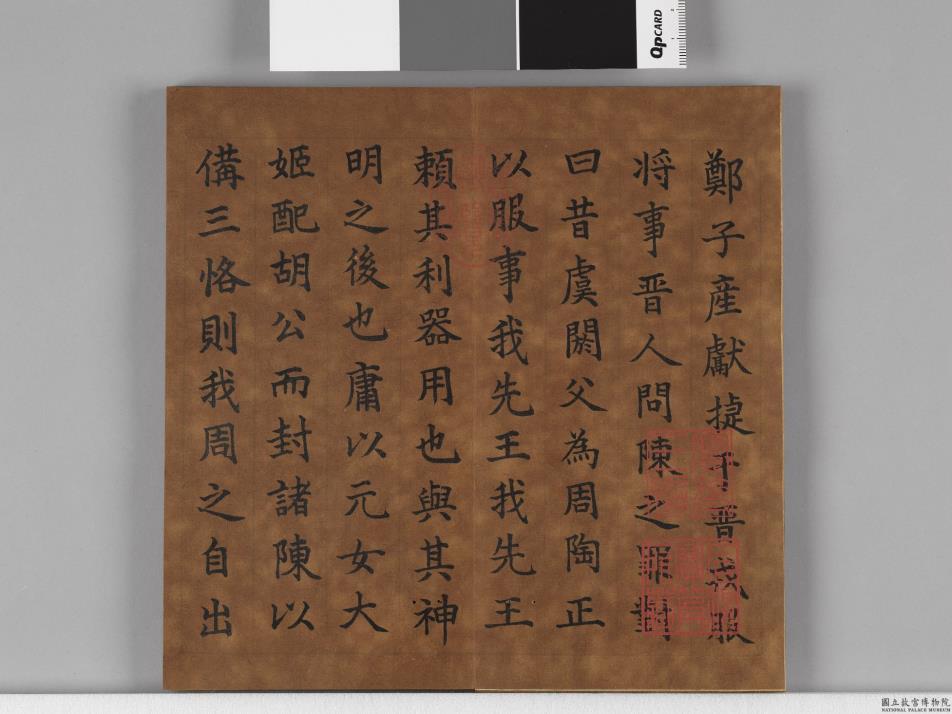 鄭子產獻捷于晋戎服
将事晋人問陳之罪對
曰昔虞閼父為周陶正
以服事我先王我先王
賴其利器用也與其神
明之後也庸以元女大
姬配胡公而封諸陳以
備三恪則我周之自出
QPCARD
國立故宮博物院
NATIONAL PALACE MUSEUM